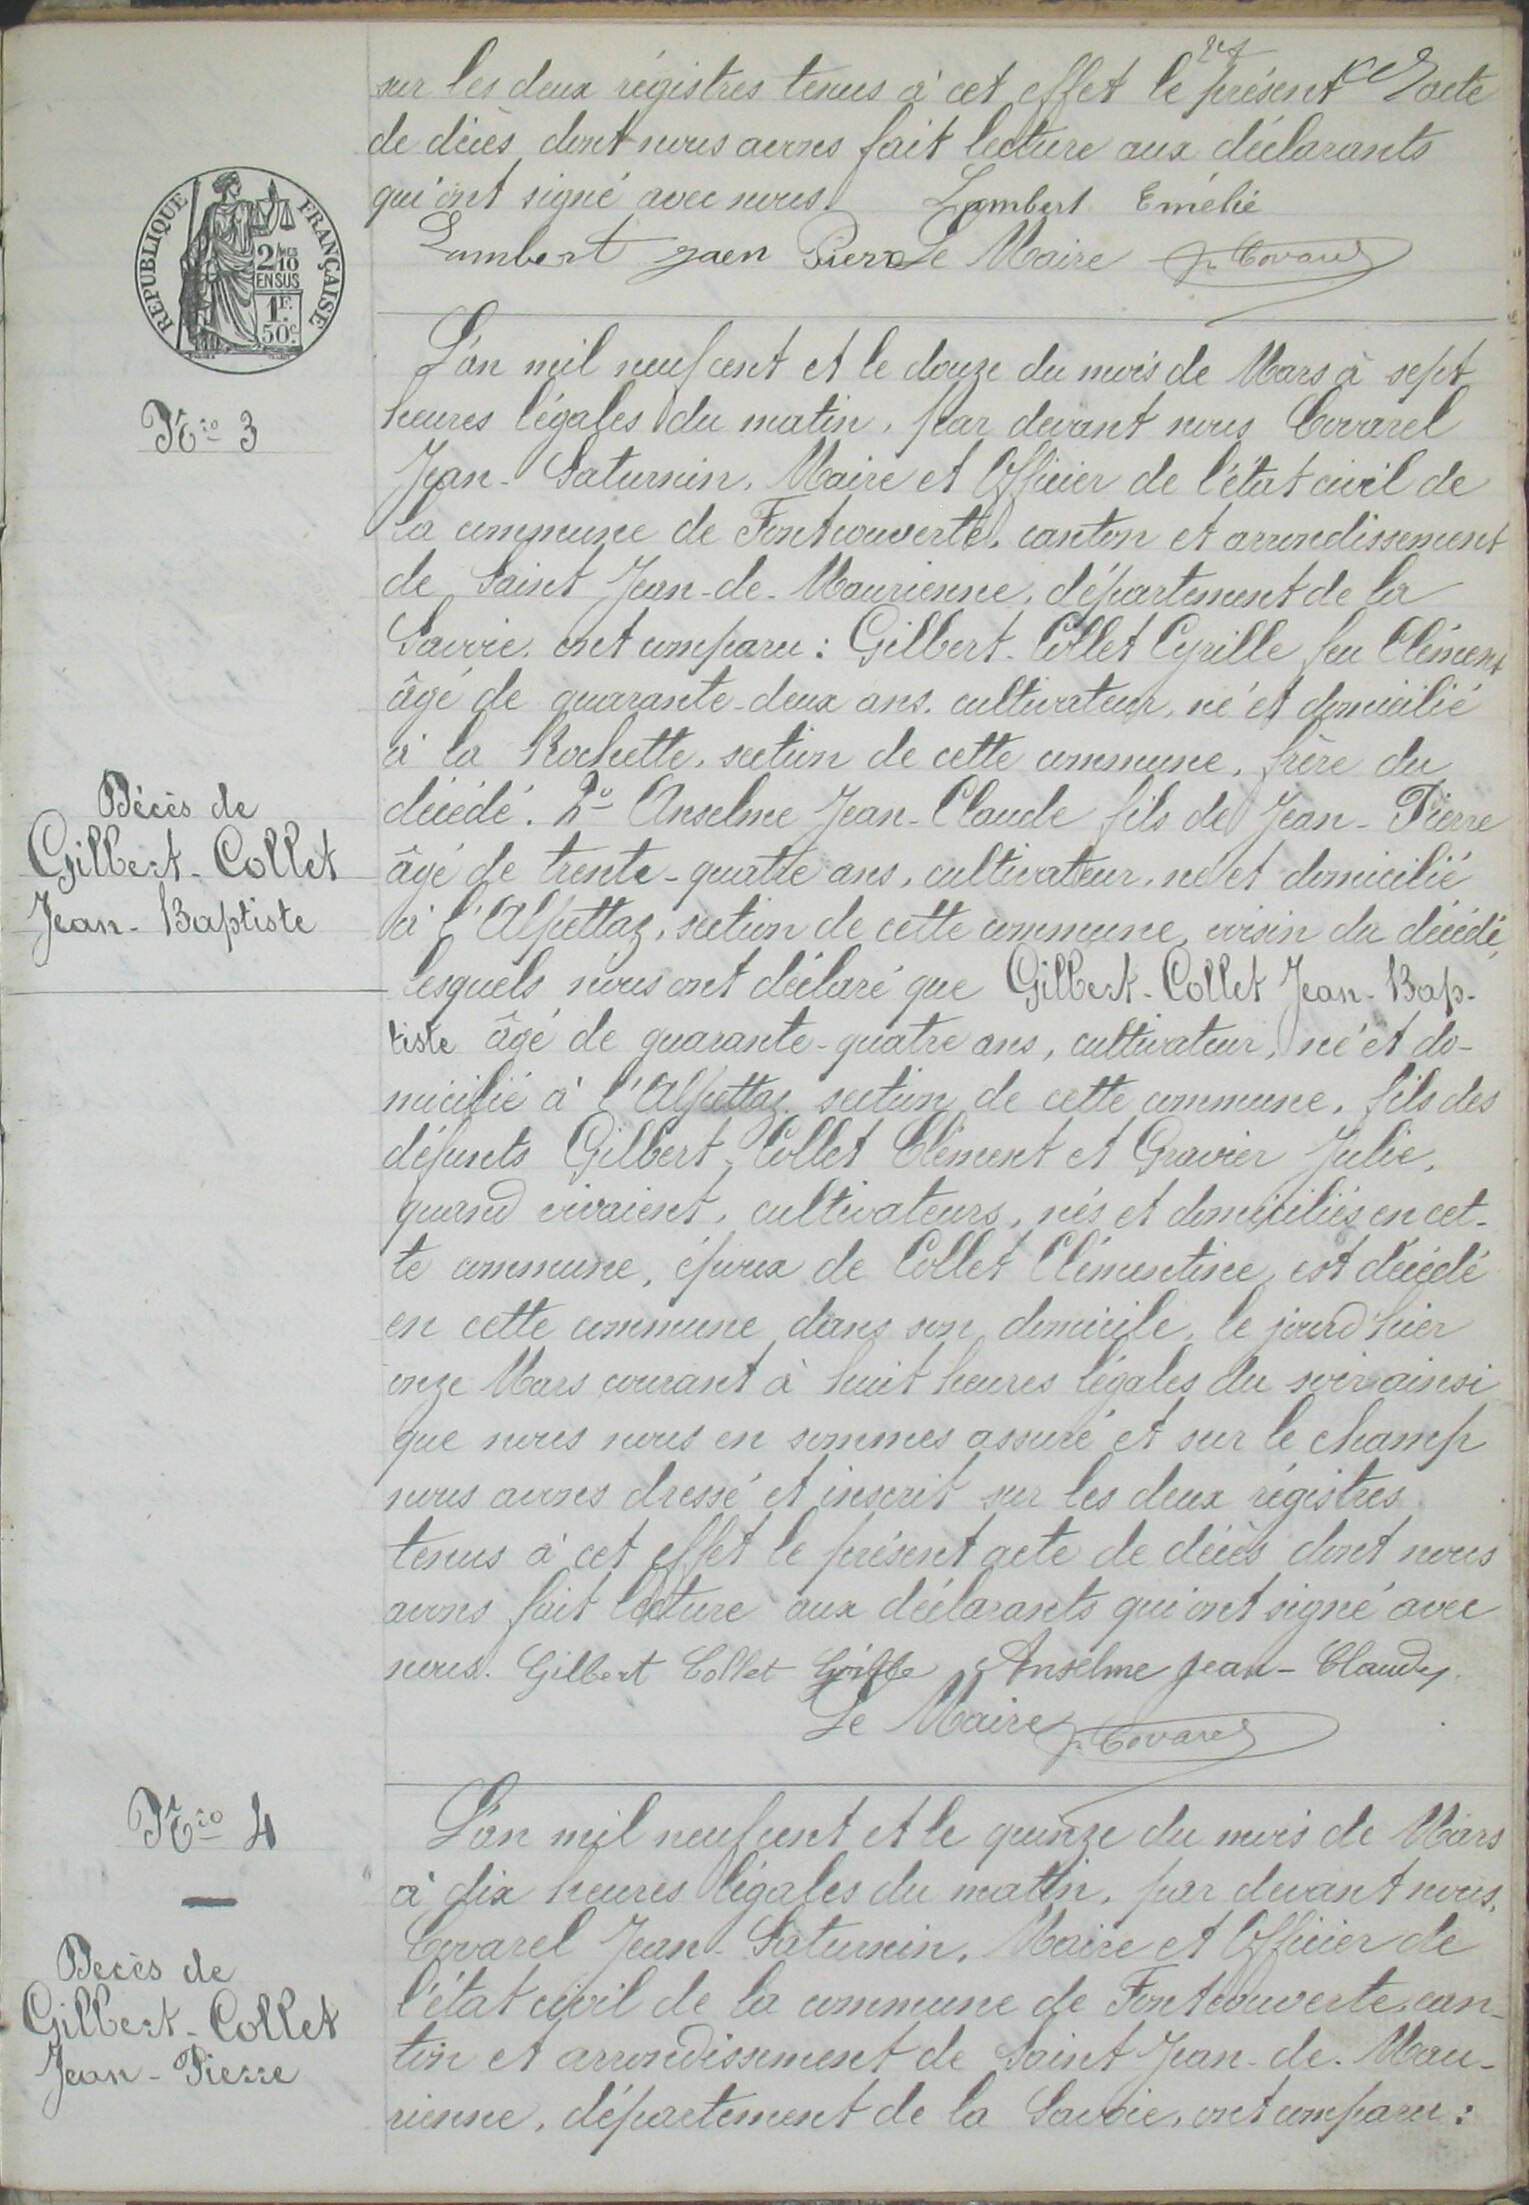 sur les deux régistres tenus à cet effet le présent acte
de décès dont nous avons fait lecture aux déclarants
qui ont signé avec nous. Lambert Emélie
Lambert Jaen Piere Le Maire J. Covarel
RÉPUBLIQUE FRANÇAISE
2/10
EN SUS
1F.
50c
L'an mil neuf cent et le douze du mois de Mars à sept
heures légales du matin, par devant nous Covarel
Nro 3
Jean-Saturnin, Maire et Officier de l'état civil de
la commune de Fontcouverte, canton et arrondissement
de Saint Jean-de-Maurienne, département de la
Savoie, ont comparu : Gilbert-Collet Cyrille feu Clément
âgé de quarante-deux ans, cultivateur, né et domicilié
à la Rochette, section de cette commune, frère du
décédé. 2o Anselme Jean-Claude fils de Jean-Pierre
Décès de
Gilbert-Collet
Jean-Baptiste
âgé de trente-quatre ans, cultivateur, né et domicilié
à l'Alpettaz, section de cette commune, voisin du décédé,
lesquels nous ont déclaré que Gilbert-Collet Jean-Bap-
tiste âgé de quarante-quatre ans, cultivateur, né et do-
micilié à l'Alpettaz section de cette commune, fils des
défunts Gilbert-Collet Clément et Gravier Julie,
quand vivaient, cultivateurs, nés et domiciliés en cet-
te commune, époux de Collet Clémentine, est décédé
en cette commune dans son domicile, le jourd'hier
onze Mars courant à huit heures légales du soir ainsi
que nous nous en sommes assuré et sur le champ
nous avons dressé et inscrit sur les deux régistres
tenus à cet effet le présent acte de décès dont nous
avons fait lecture aux déclarants qui ont signé avec
nous. Gilbert Collet Anselme Jean-Claude
Le Maire J. Covarel
Nro 4
L'an mil neuf cent et le quinze du mois de Mars
à dix heures légales du matin, par devant nous,
Covarel Jean-Saturnin, Maire et Officier de
l'état civil de la commune de Fontcouverte, can-
ton et arrondissement de Saint Jean-de-Mau-
rienne, département de la Savoie, ont comparu :
Decès de
Gilbert-Collet
Jean-Pierre